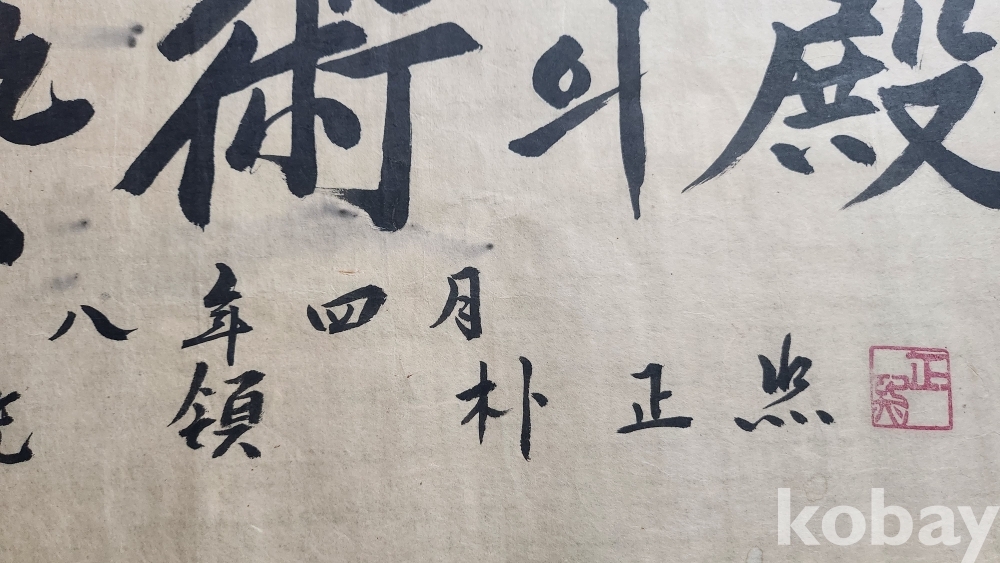 術의殿
八年四月
領 朴正熙
kobay